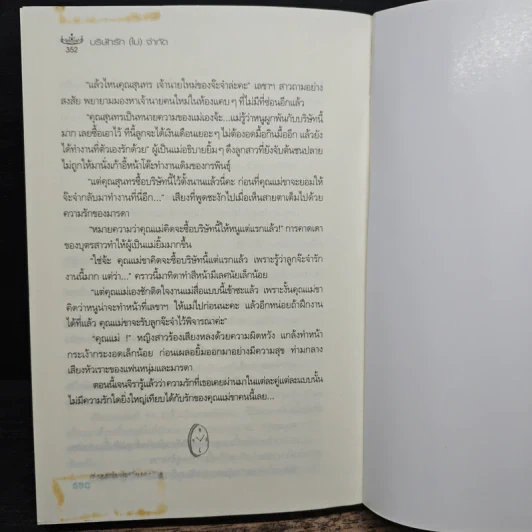 บริษัทรัก (ไม่) จำกัด
352
"แล้วไหนคุณสุนทร เจ้านายใหม่ของจ๊ะจ๋าล่ะคะ" เลขาฯ สาวถามอย่าง
สงสัย พยายามมองหาเจ้านายคนใหม่ในห้องแคบๆ ที่ไม่มีที่ซ่อนอีกแล้ว
"คุณสุนทรเป็นทนายความของแม่เองจ้ะ...แม่รู้ว่าหนูผูกพันกับบริษัทนี้
มาก เลยซื้อเอาไว้ ทีนี้ลูกจะได้เงินเดือนเยอะๆ ไม่ต้องอดมื้อกินมื้ออีก แล้วยัง
ได้ทำงานที่ตัวเองรักด้วย" ผู้เป็นแม่อธิบายยิ้มๆ ดึงลูกสาวที่ยังจับต้นชนปลาย
ไม่ถูกให้มานั่งเก้าอี้หน้าโต๊ะทำงานเดิมของกรพันธุ์
"แต่คุณสุนทรซื้อบริษัทนี้ไว้ตั้งนานแล้วนี่คะ ก่อนที่คุณแม่ขาจะยอมให้
จ๊ะจ๋ากลับมาทำงานที่นี่อีก..." เสียงที่พูดชะงักไปเมื่อเห็นสายตาเต็มไปด้วย
ความรักของมารดา
"หมายความว่าคุณแม่คิดจะซื้อบริษัทนี้ให้หนูแต่แรกแล้ว!" การคาดเดา
ของบุตรสาวทำให้ผู้เป็นแม่ยิ้มมากขึ้น
"ใช่จ้ะ คุณแม่ขาคิดจะซื้อบริษัทนี้แต่แรกแล้ว เพราะรู้ว่าลูกจ๊ะจ๋ารัก
งานนี้มาก แต่ว่า..." คราวนี้มาทิดาทำสีหน้ามีเลศนัยเล็กน้อย
"แต่คุณแม่เองชักติดใจงานแม่สื่อแบบนี้เข้าซะแล้ว เพราะงั้นคุณแม่ขา
คิดว่าหนูน่าจะทำหน้าที่เลขาฯ ให้แม่ไปก่อนนะคะ แล้วอีกหน่อยถ้าฝึกงาน
ได้ที่แล้ว คุณแม่ขาจะรับลูกจ๊ะจ๋าไว้พิจารณาค่ะ"
"คุณแม่ !" หญิงสาวร้องเสียงหลงด้วยความผิดหวัง แกล้งทำหน้า
กระเง้ากระงอดเล็กน้อย ก่อนเผลอยิ้มออกมาอย่างมีความสุข ท่ามกลาง
เสียงหัวเราะของแฟนหนุ่มและมารดา
ตอนนี้เจนจิรารู้แล้วว่าความรักที่เธอเคยผ่านมาในแต่ละคู่แต่ละแบบนั้น
ไม่มีความรักใดยิ่งใหญ่เทียบได้กับรักของคุณแม่ขาคนนี้เลย...